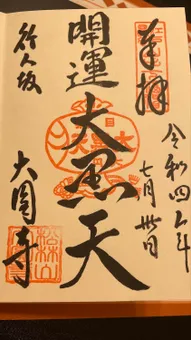 奉拝
令和四年
七月卅日
開運大黒天
行人坂
大圓寺